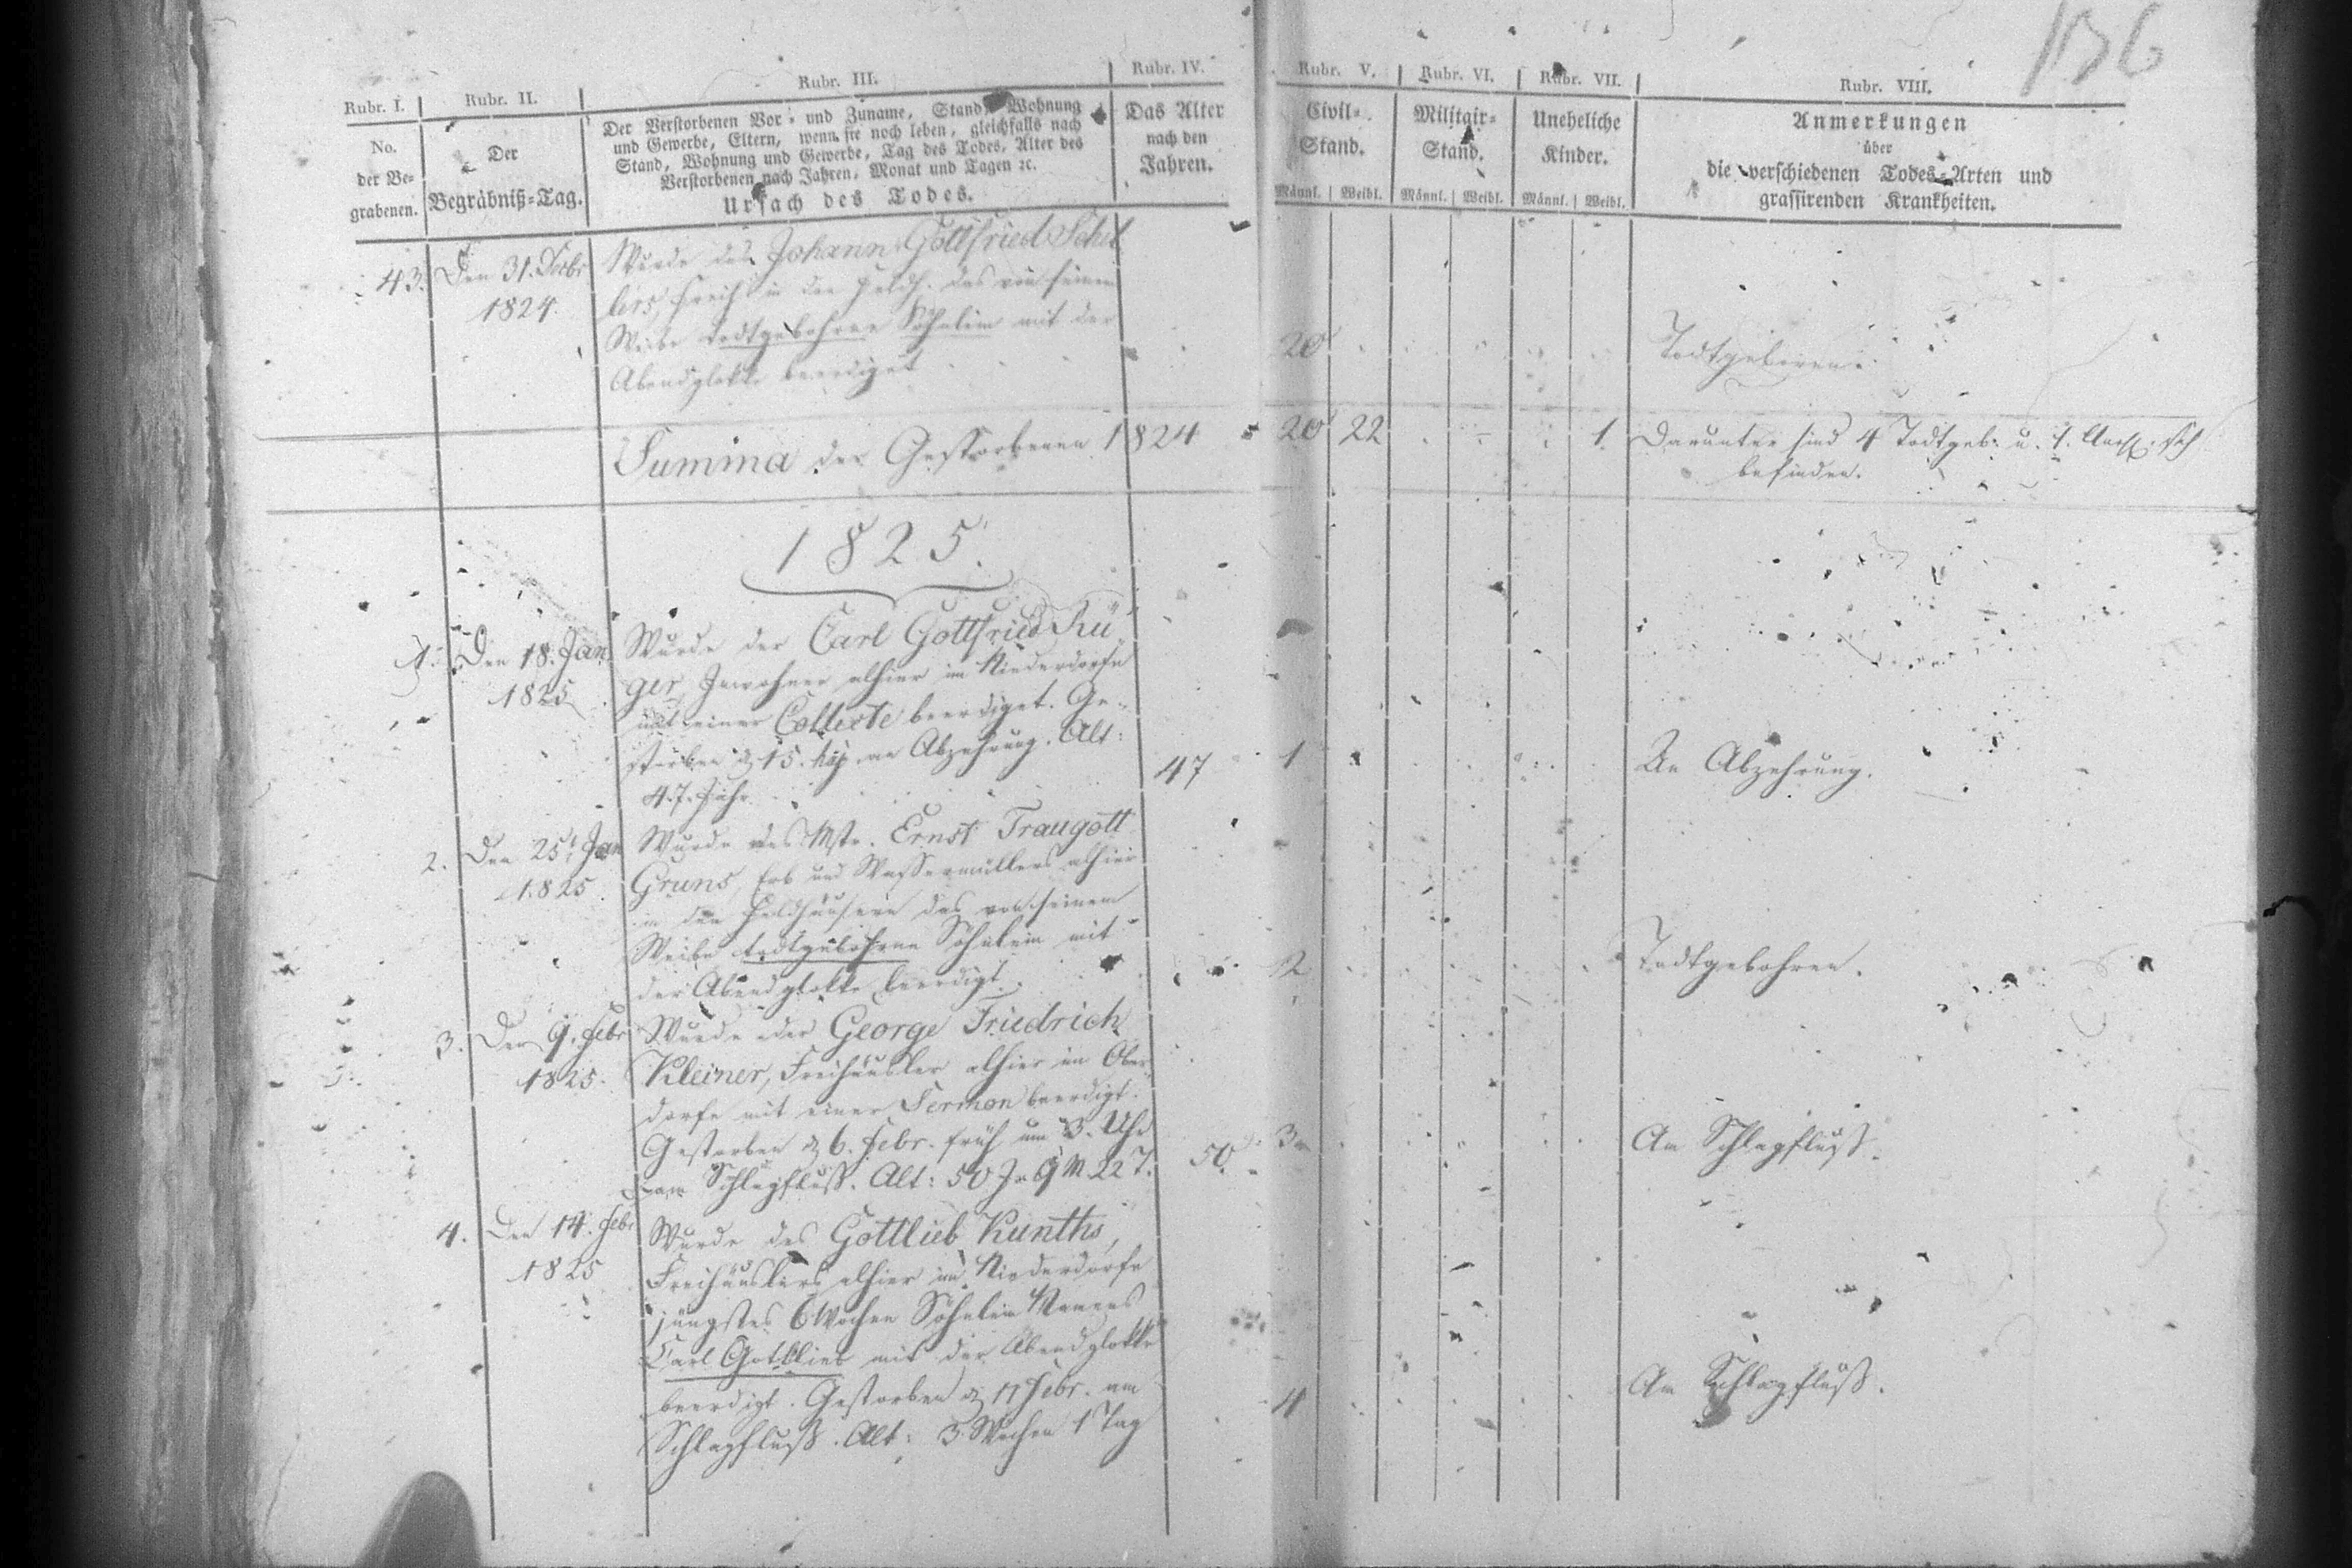 136
Rubr. I.
No.
der Be-
grabenen.
Rubr. II.
Der
Begräbniß-Tag.
Rubr. III.
Der Verstorbenen Vor- und Zuname, Stand, Wohnung
und Gewerbe, Eltern, wenn sie noch leben, gleichfalls nach
Stand, Wohnung und Gewerbe, Tag des Todes, Alter des
Verstorbenen nach Jahren, Monat und Tagen ꝛc.
Ursach des Todes.
Rubr. IV.
Das Alter
nach den
Jahren.
Rubr. V.
Civil-
Stand.
Männl. Weibl.
Rubr. VI.
Militair-
Stand.
Männl. Weibl.
Rubr. VII.
Uneheliche
Kinder.
Männl. Weibl.
Rubr. VIII.
Anmerkungen
über
die verschiedenen Todes-Arten und
grassirenden Krankheiten.
43. Den 31.
1824.
Wurde des Johann Gottfried Schol
in den das von seinem
Weibe todtgebohrne Söhnlein mit der
Abendglokke beerdiget
20
Todtgeboren.
Summa der Gestorbenen 1824
20 22 1.
Darunter sind 4 Todtgeb. u. 1.
befinden.
1825.
1. Den 18. Jan
1825
Wurde der Carl Gottfried Rü-
ger, Inwohner alhier im Niederdorfe
mit einer Collecte beerdiget. Ge-
storben d. 15. huj. an Abzehrung. Alt:
47. Jahr.
47
1
An Abzehrung.
2. Den 25t Jan
1825.
Wurde des Mstr. Ernst Traugott
Gruns, Erb und Wassermüllers alhier
in den Feldhäusern das von seinem
Weibe todtgebohrne Söhnlein mit
der Abendglokke beerdigt.
2
Todtgebohren.
3. Den 9. Febr
1825.
Wurde der George Friedrich
Kleiner, Freihäusler alhier im Ober-
dorfe mit einer Sermon beerdigt.
Gestorben d. 6. Febr. früh um 3. Uhr
am Schlagfluß. Alt: 50 J. 9 M 22 T.
50.
3
Am Schlagfluß.
4. Den 14. Febr
1825
Wurde des Gottlieb Kunths,
Freihäuslers alhier im Niederdorfe
jüngstes 6 Wochen Söhnlein Namens
Carl Gottlieb mit der Abendglokke
beerdigt. Gestorben d. 11 Febr. am
Schlagfluß. Alt: 3 Wochen 1 Tag
4
Am Schlagfluß.